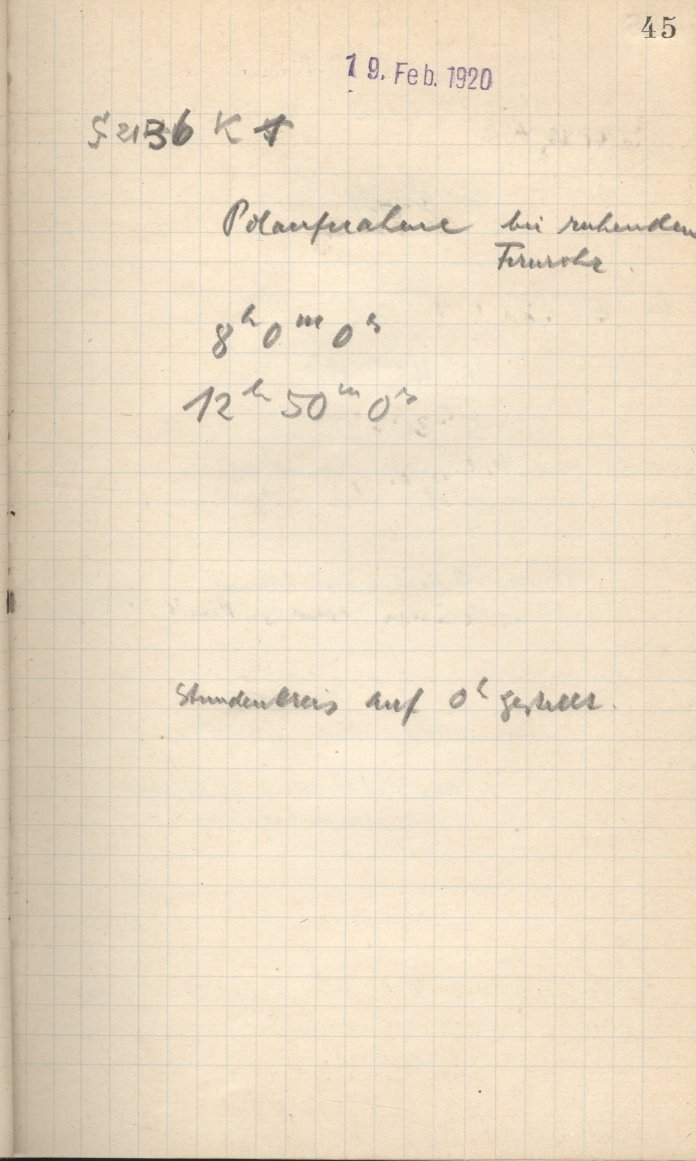 45
19. Feb. 1920
S 2136 K
Polaufnahme bei ruhendem
Fernrohr.
8ʰ 0ᵐ 0ˢ
12ʰ 50ᵐ 0ˢ
Stundenkreis auf 0ʰ gestellt.